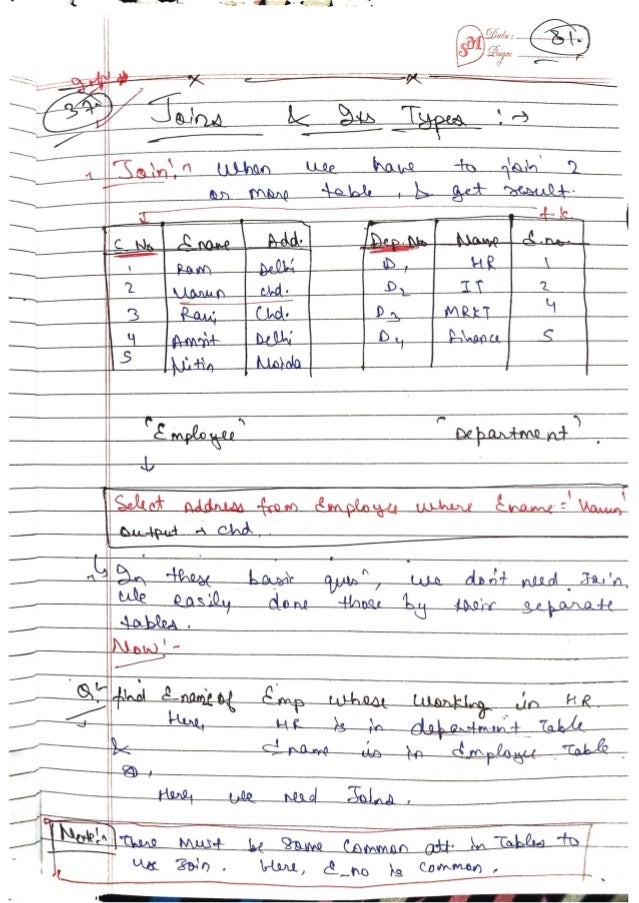 SM Date:- 81.
Page:-
37.
Joins & Its Types :→
Join:- When we have to join 2
or more table, & get result.
f k
E. No Ename Add. Dep. No Name E.no
1 Ram Delhi D1 HR 1
2 Varun Chd. D2 IT 2
3 Ravi Chd. D3 MRKT 4
4 Amrit Delhi D4 Finance 5
5 Nitin Noida
"Employee" "Department".
Select Address from Employee where Ename = 'Varun'
Output → Chd.
In these basic quesn, we don't need Join.
We easily done those by their separate
tables.
Now:-
Q:- find E name of Emp whose working in HR.
Here, HR is in department Table
& Ename is in Employee Table.
Here, we need Joins.
Note:- There must be some common att. in Tables to
use Join. Here, E_no is common.